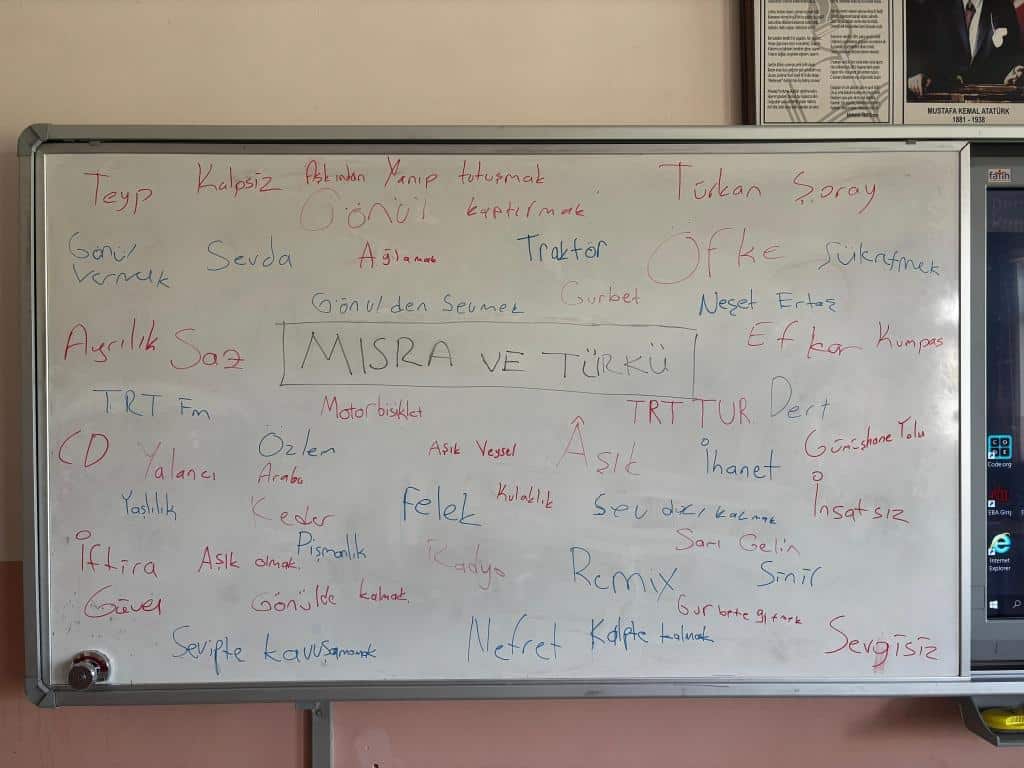 MUSTAFA KEMAL ATATÜRK
1881 - 1938
Teyp Kalpsiz Aşkından Yanıp tutuşmak Türkan Şoray
Gönül kaptırmak
Gönül vermek Sevda Ağlamak Traktör Öfke Şükretmek
Gönülden Sevmek Gurbet Neşet Ertaş
Ayrılık Saz MISRA VE TÜRKÜ Efkar Kumpas
TRT Fm Motorbisiklet TRT TUR Dert
CD Yalancı Özlem Aşık Veysel Aşık İhanet Gümüşhane Yolu
Araba
Yaşlılık Keder Felek Kulaklık İnsafsız
İftira Aşık olmak Pişmanlık Radyo Remix Sarı Gelin Sinir
Güvel Gönülde kalmak Gurbete gitmek
Sevipte kavuşamamak Nefret Kalpte kalmak Sevgisiz
fatih
Code.org
EBA Giriş
Internet
Explorer